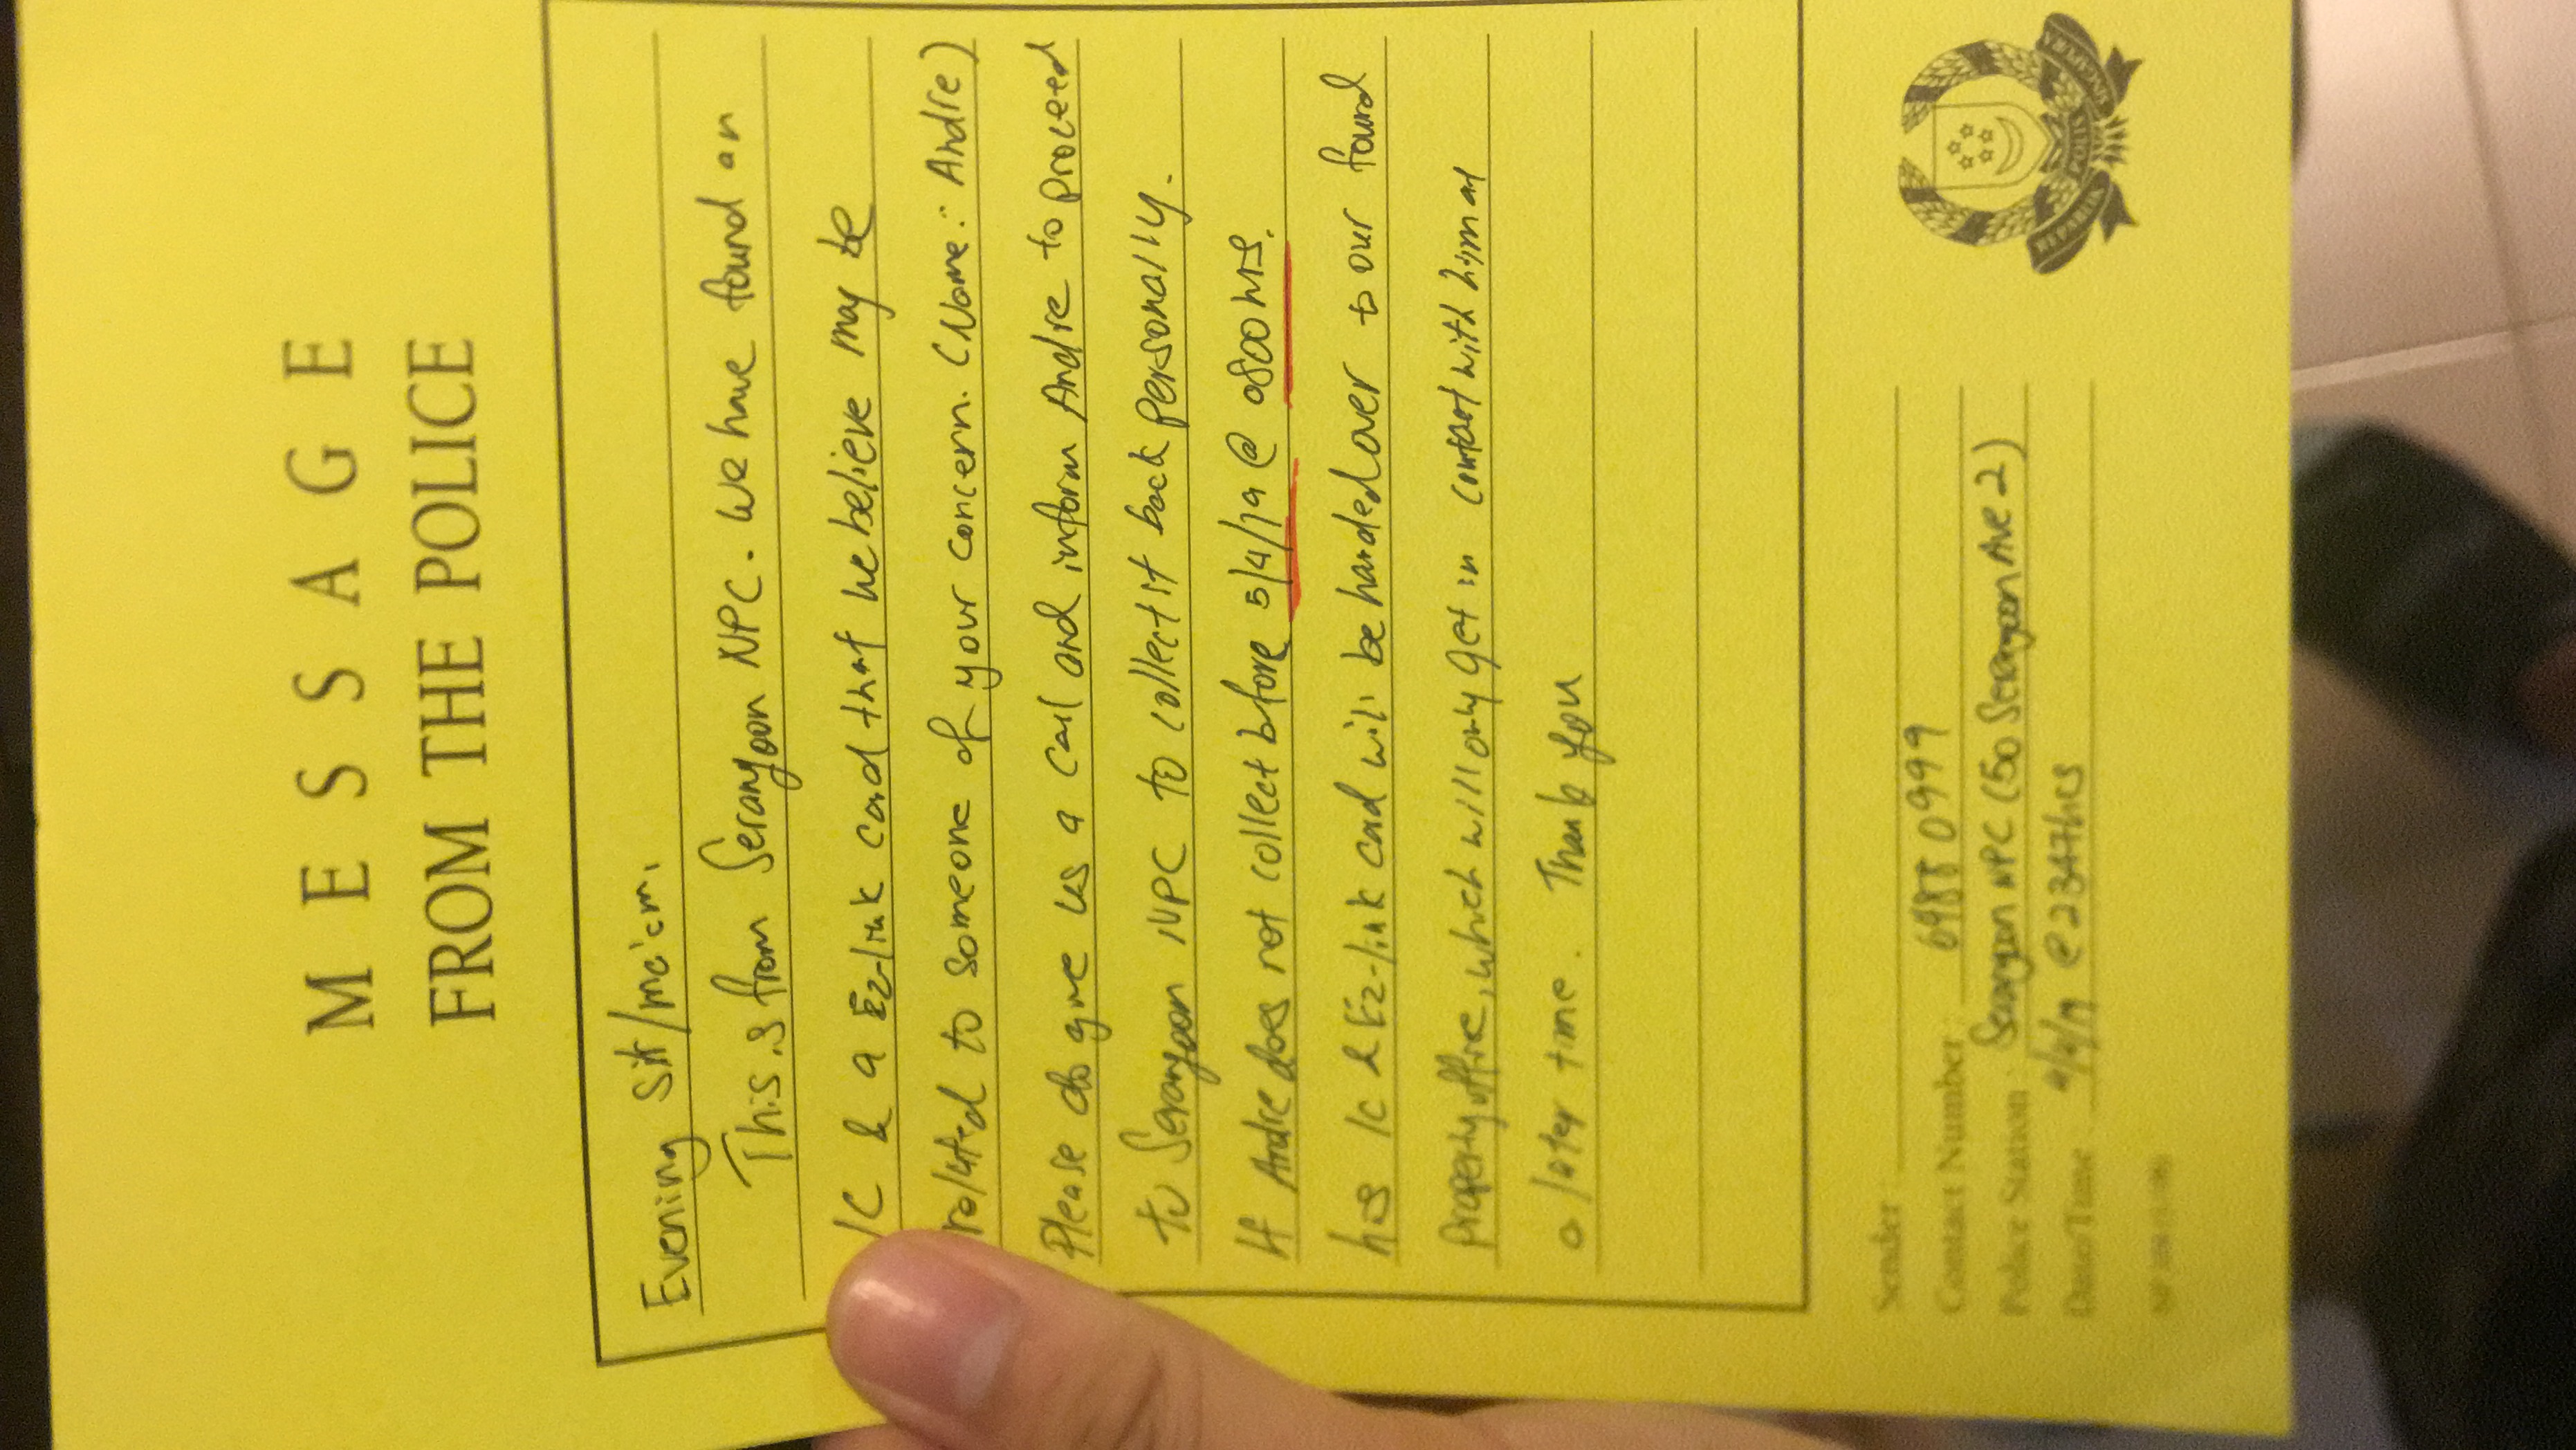 MESSAGE
FROM THE POLICE
Evening Sir/ma'am,
This is from Serangoon NPC. We have found an
IC & a Ez-link card that we believe may be
related to someone of your concern. (Name: Andre)
Please do give us a call and inform Andre to proceed
to Serangoon NPC to collect it back personally.
If Andre does not collect before 5/4/19 @ 0800 hrs.
his IC & Ez-link card will be handed over to our found
property office, which will only get in contact with him at
a later time. Thank you
Sender :
Contact Number : 6488 0999
Police Station : Serangoon NPC (50 Serangoon Ave 2)
Date/Time : 4/4/19 @ 2347hrs
REPUBLIK POLIS SINGAPURA